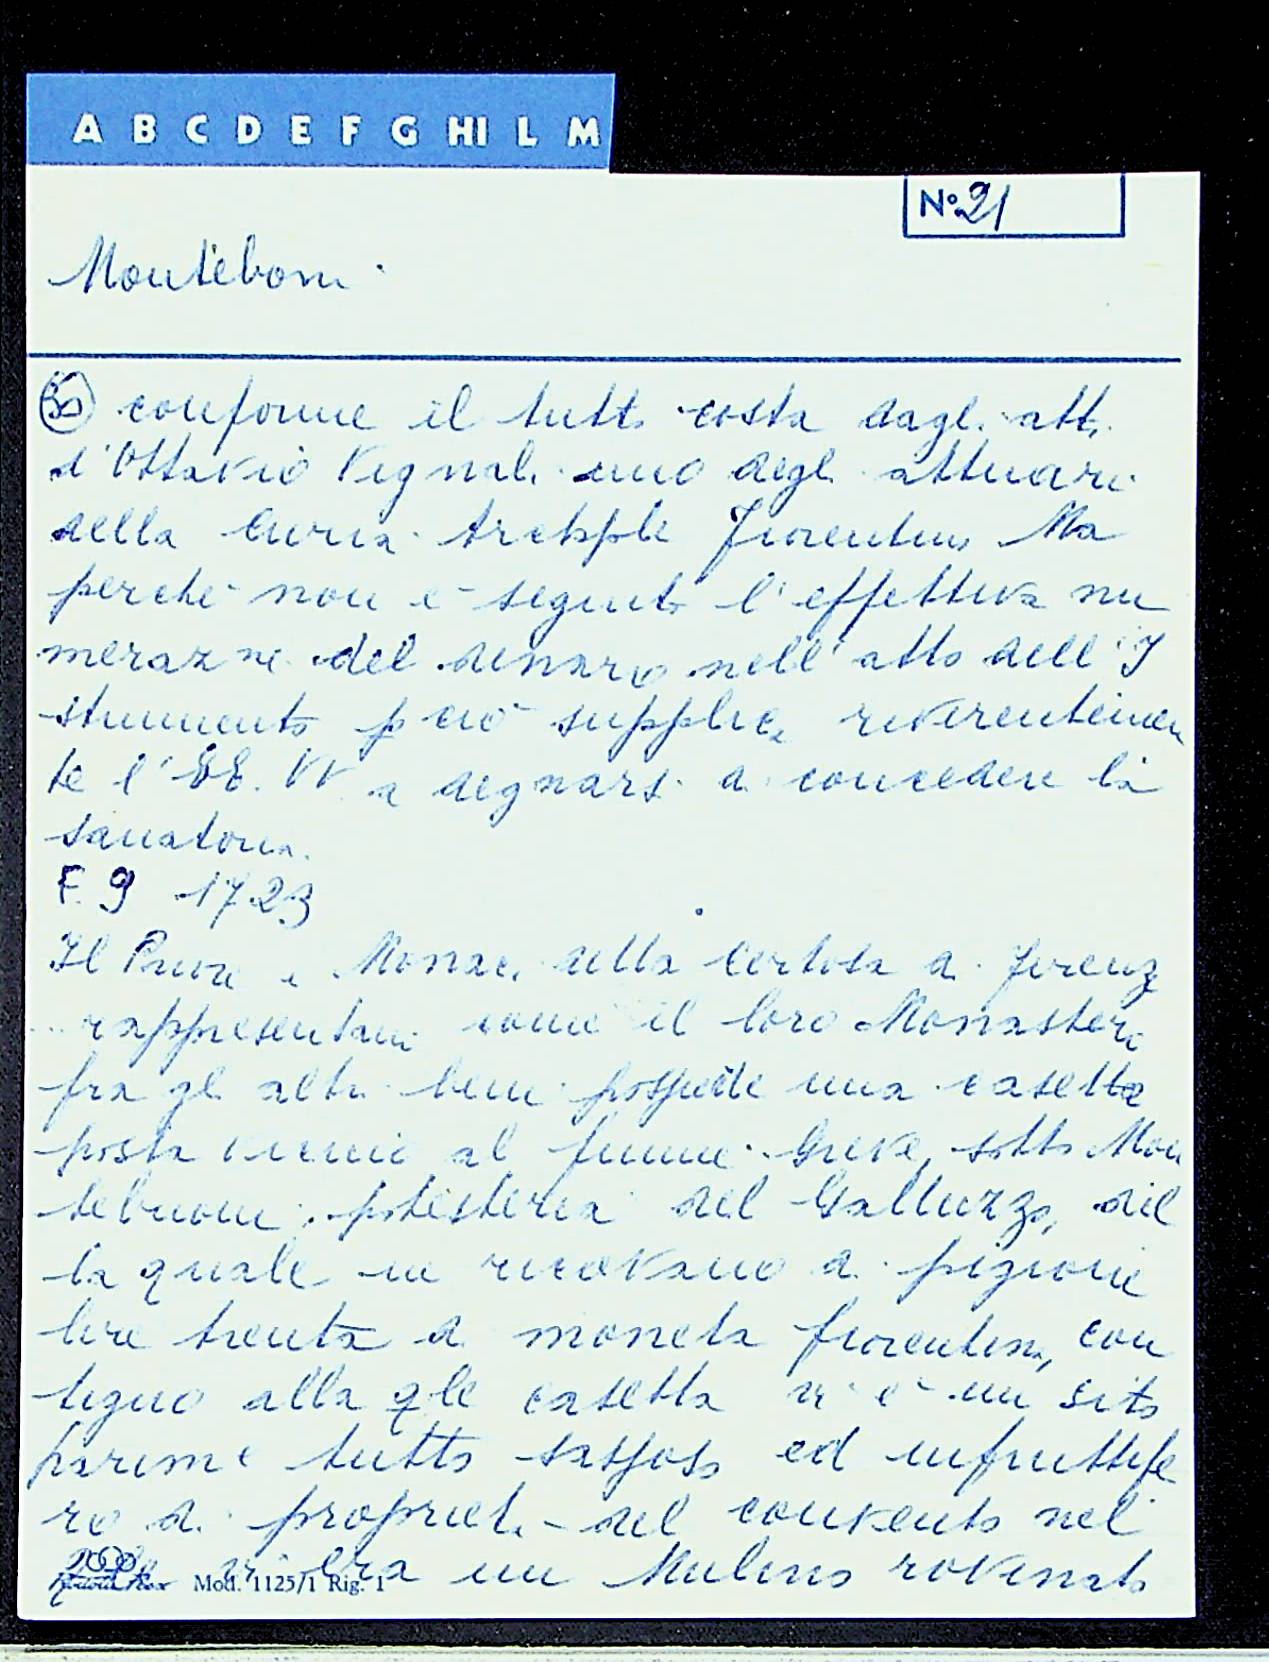 A B C D E F G HI L M
N° 21
Monteboni.
conforme il tutto costa dagli atti
d'Ottavio Vignali uno degli attuari
della Curia Fiorentina Ma
perché non è seguito l'effettiva nu
merazne del denaro nell'atto dell'I
strumento p ciò supplica reverentemen
te l'EE. VV. a degnarsi di concedere la
sanatoria.
F. 9 1723
Il Priore e Monaci della Certosa di Firenze
rappresentano come il loro Monastero
fra gli altri beni possiede una casetta
posta vicino al fiume Greve, sotto Mon
tebuoni, potesteria del Galluzzo, del
la quale ne ricavano di pigione
lire trenta di moneta fiorentina, con
tiguo alla qle casetta vi è un sito
parime tutto sassoso ed infruttife
ro di propriet. del convento nel
quale vi era un Mulino rovinato
Mod. 1125/1 Rig. 1